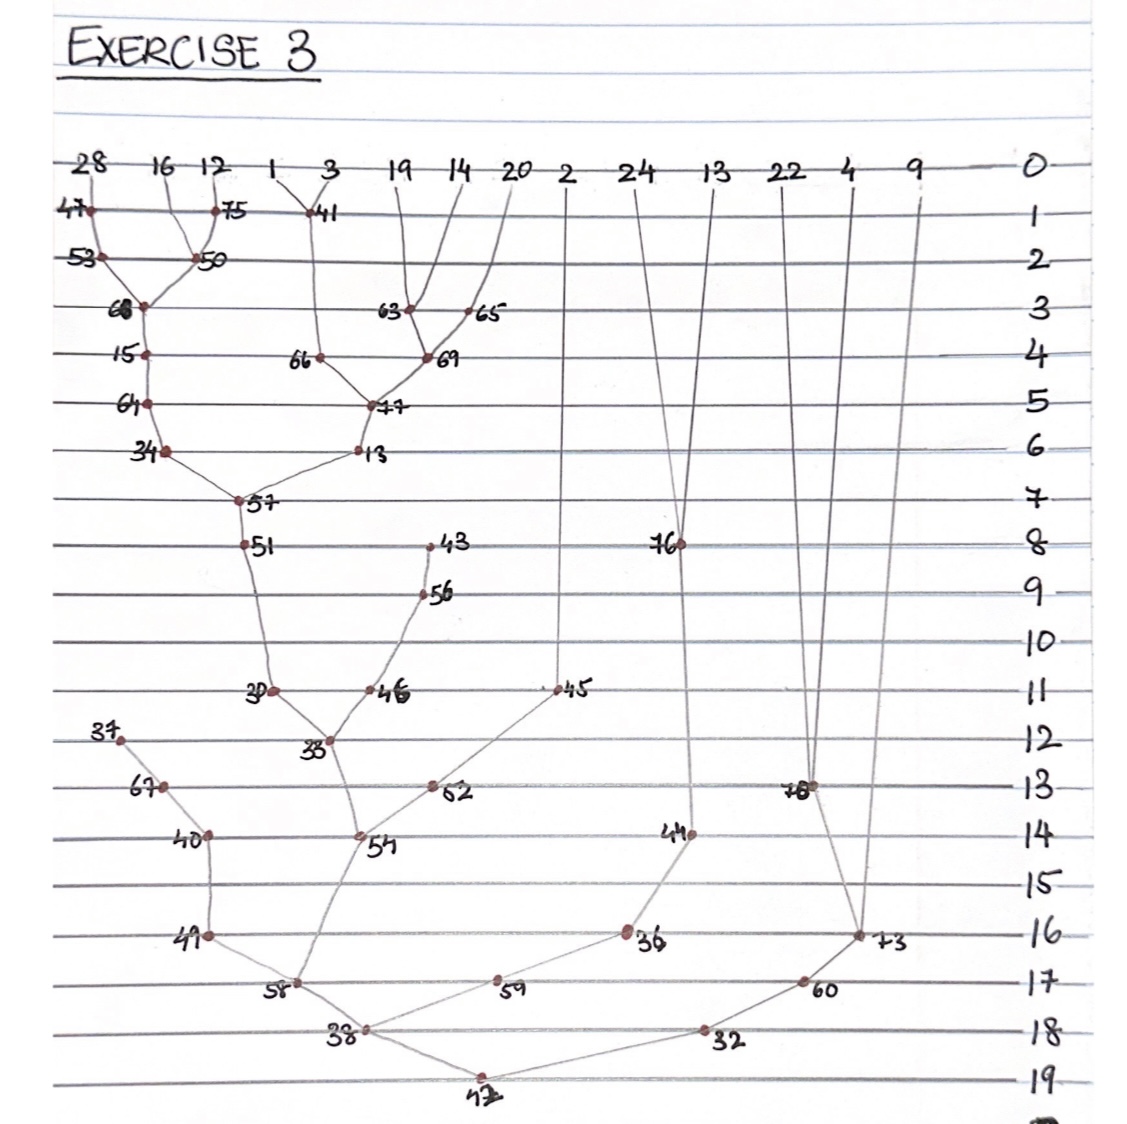 EXERCISE 3
28 16 12 1 3 19 14 20 2 24 13 22 4 9 0
47 75 41 1
53 50 2
63 65 3
15 66 69 4
64 77 5
34 13 6
57 7
51 43 76 8
56 9
10
39 46 45 11
37 33 12
67 62 78 13
40 54 44 14
15
49 36 73 16
58 59 60 17
38 32 18
42 19